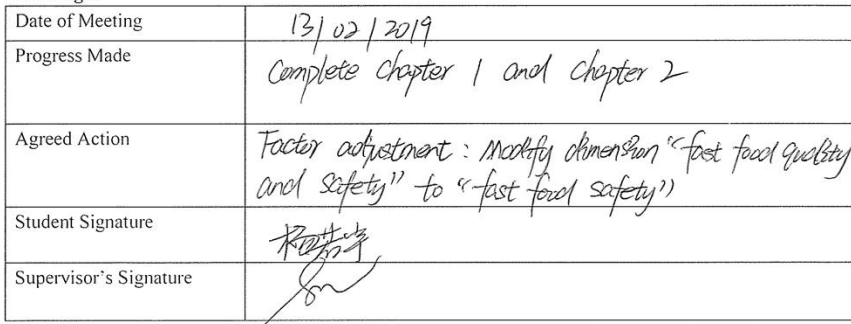 Date of Meeting
13/02/2019
Progress Made
Complete chapter 1 and chapter 2
Agreed Action
Factor adjustment : Modify dimension "fast food quality
and safety" to "fast food safety")
Student Signature
Supervisor's Signature